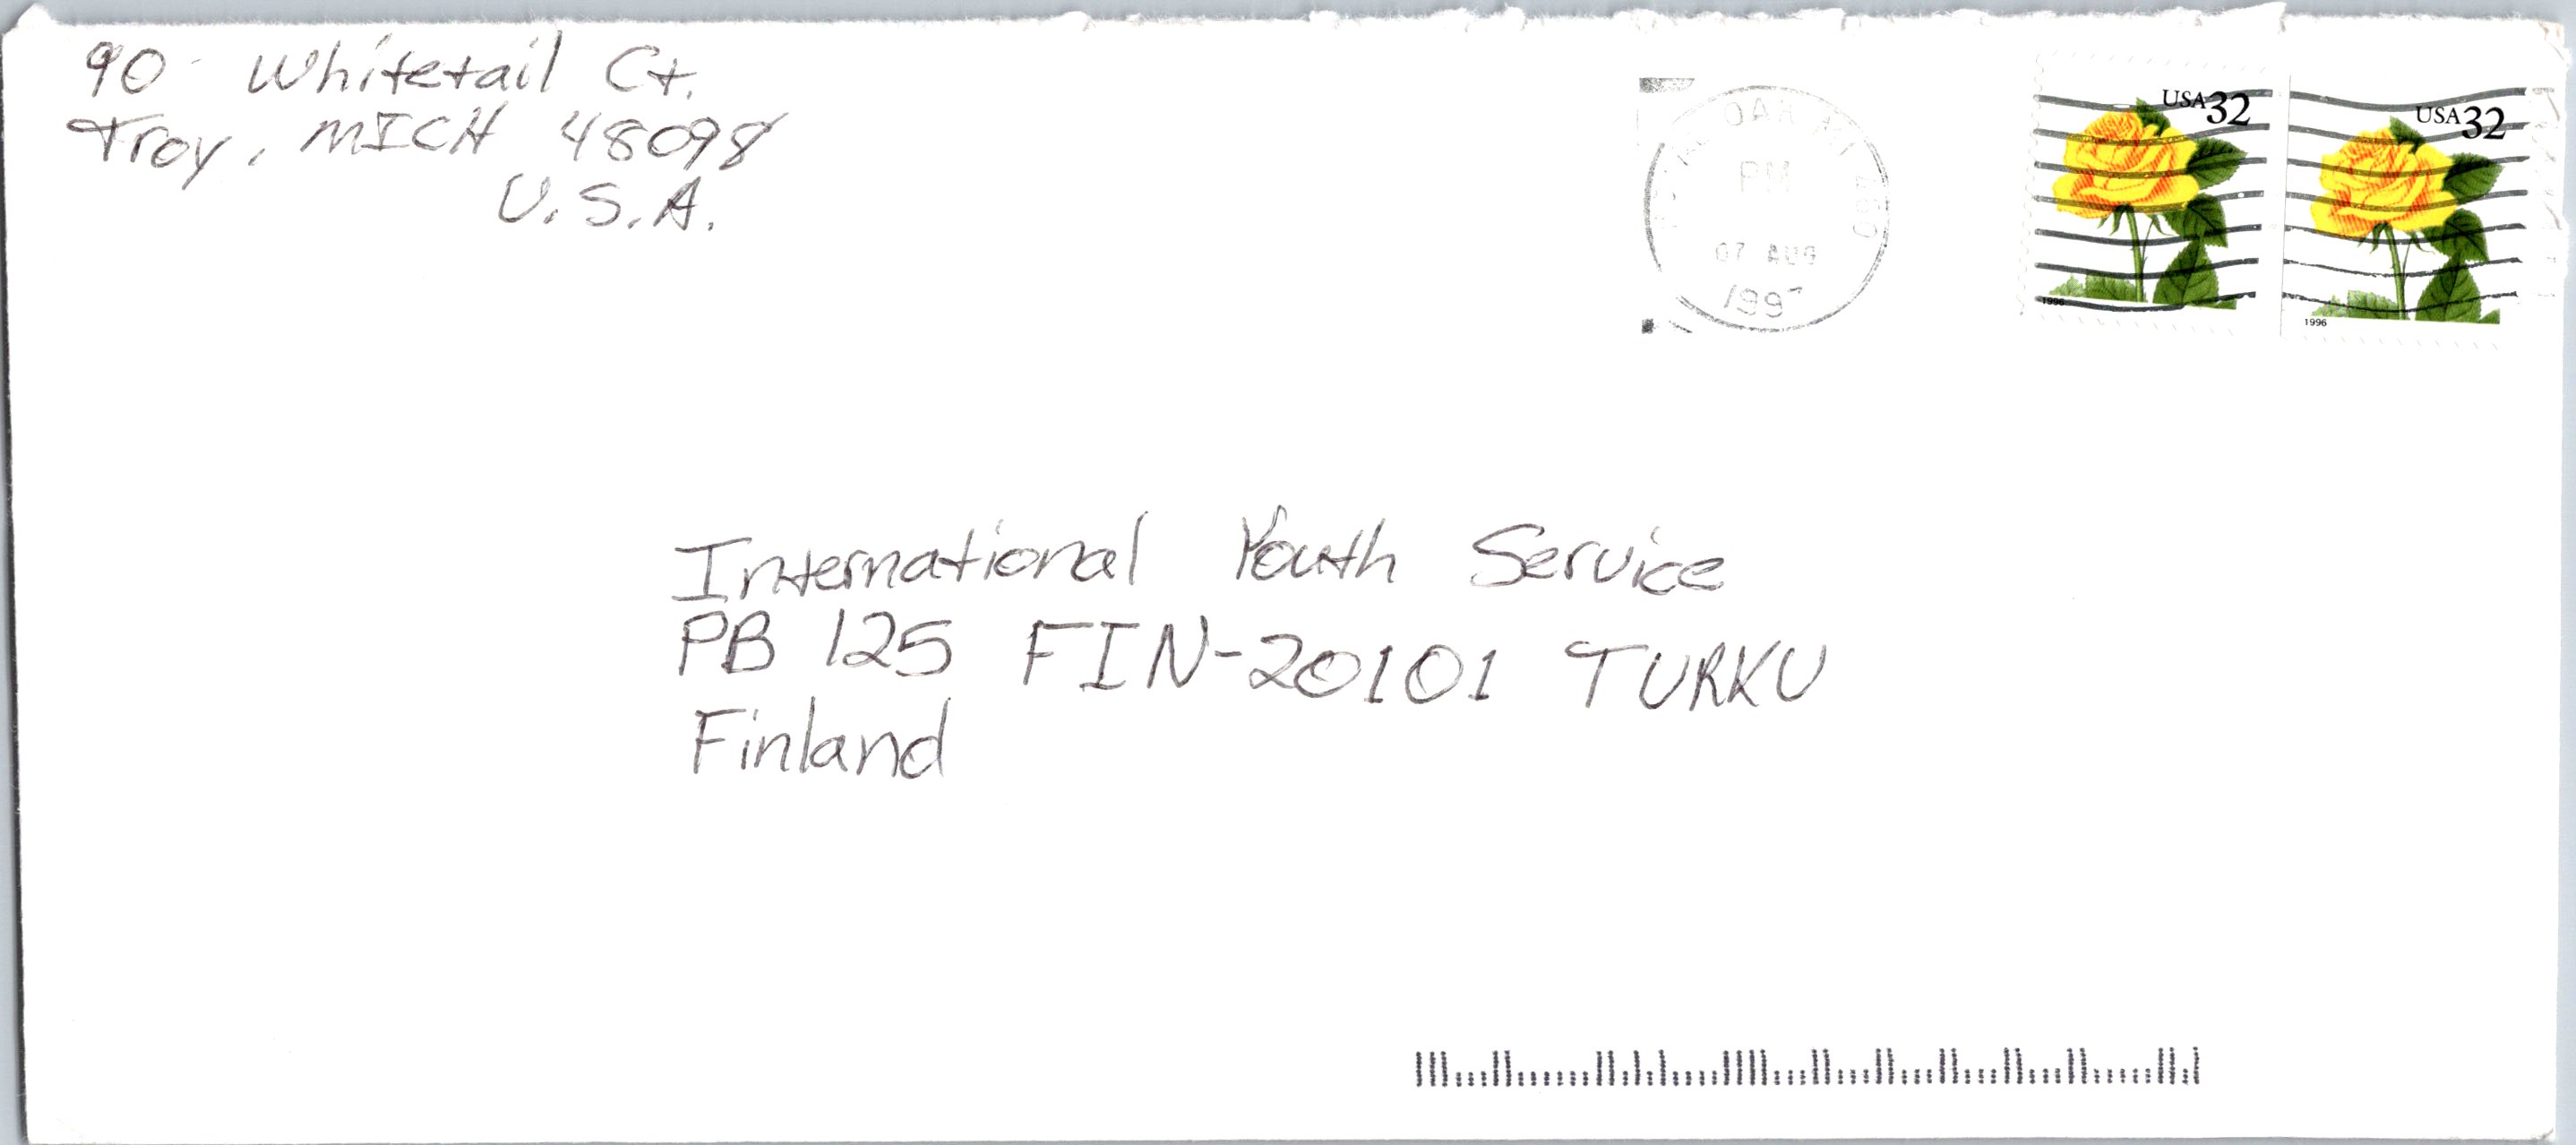 90 Whitetail Ct.
Troy, MICH 48098
U.S.A.
OAK MI 480
PM
07 AUG
199
USA 32
1996
USA 32
1996
International Youth Service
PB 125 FIN-20101 TURKU
Finland